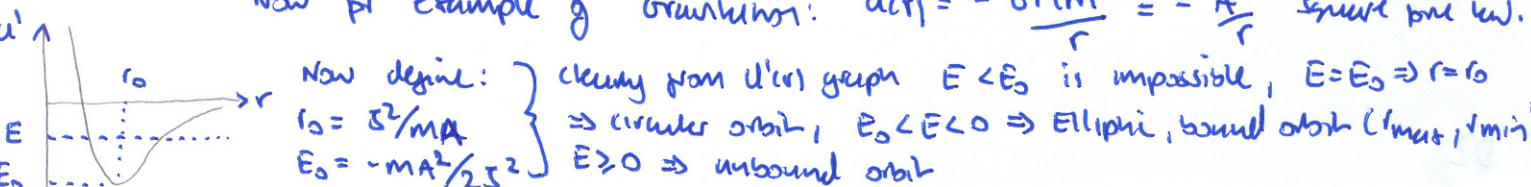 Now for example of Gravitation: U(r) = - GMm/r = - A/r square force law.
U'
r₀
r
E
E₀
Now define:
r₀ = J²/mA
E₀ = -mA²/2J²
Clearly from U'(r) graph E < E₀ is impossible, E = E₀ ⇒ r = r₀
⇒ circular orbit, E₀ < E < 0 ⇒ Elliptic, bound orbit (rmax, rmin
E ≥ 0 ⇒ unbound orbit